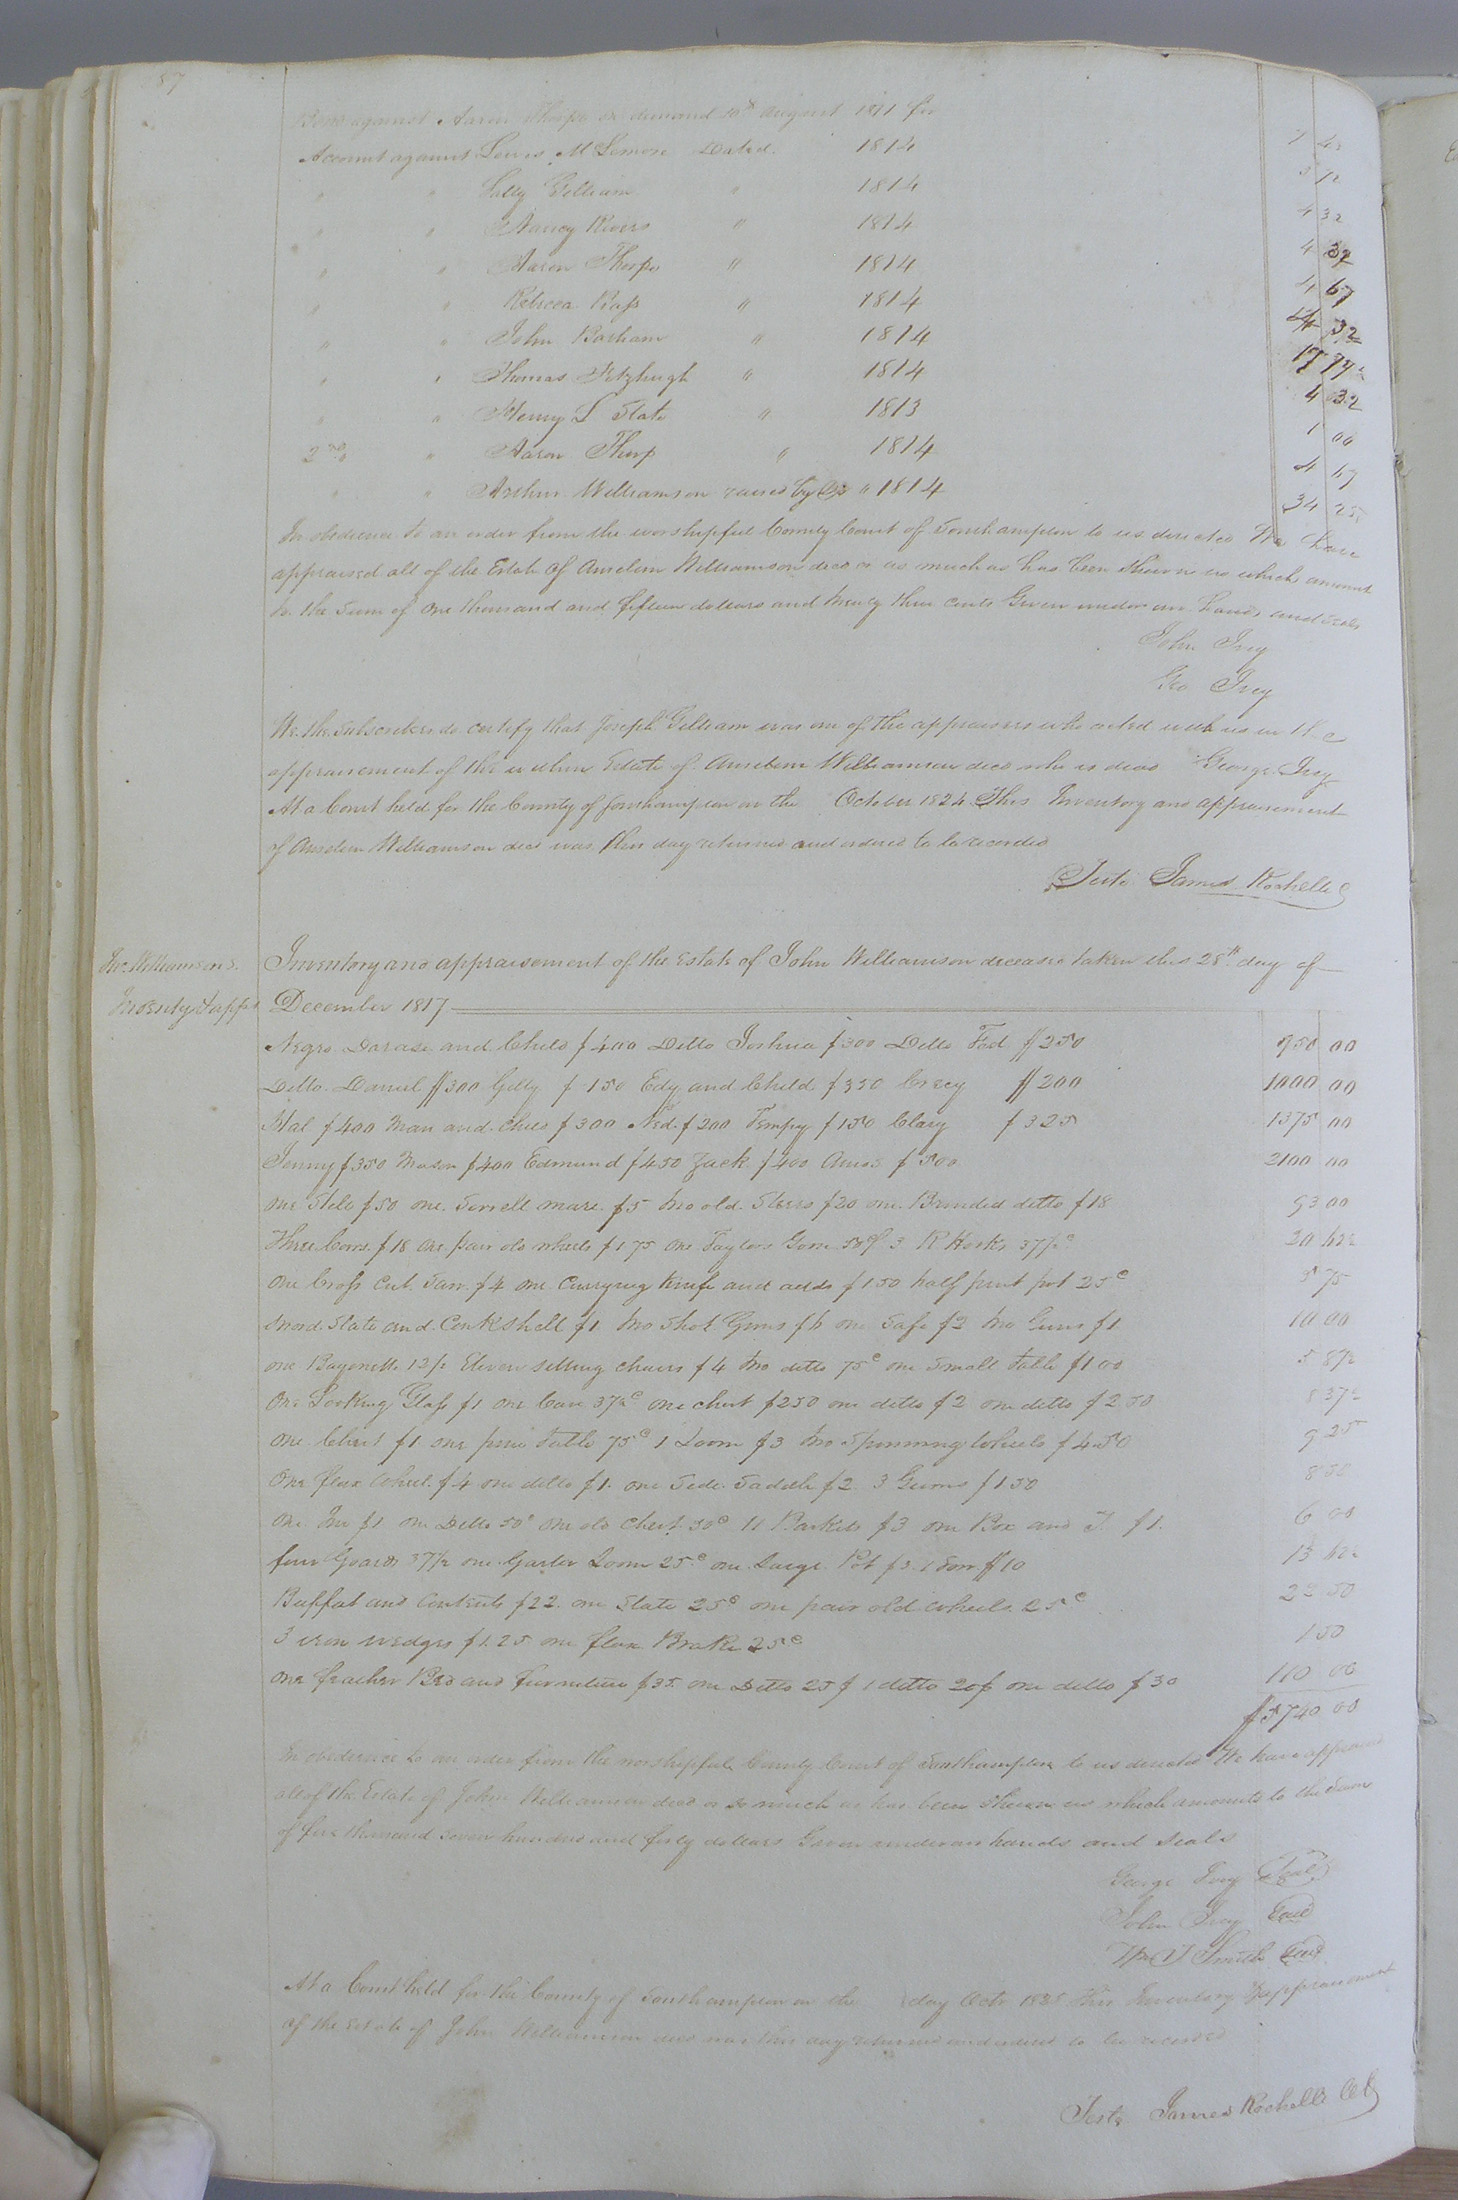 187
Bond against Aaron Thorpe on demand 20th August 1811 for
Account against Lewis McLemore Dated. 1814
" " Sally Gilliam " 1814 3 12
" " Nancy Rivers " 1814 4 32
" " Aaron Thorpe " 1814 4 32
" " Rebecca Bass " 1814 4 67
" " John Barham " 1814 32
" " Thomas Fitzhugh " 1814 17
" " Henry L Slate " 1813 4 32
2nd " Aaron Thorp " 1814 1 00
" " Arthur Williamson " 1814 4 67
34 25
In obedience to an order from the worshipful County Court of Southampton to us directed We have
appraised all of the Estate of Anselem Williamson decd or as much as has been shewn us which amount
to the Sum of One thousand and fifteen dollars and twenty three cents Given under our hands and seals
John Ivey
Geo Ivey
We the Subscribers do certify that Joseph Gilliam was one of the appraisers who acted with us in the
appraisement of the within Estate of Anselem Williamson decd who is dead George Ivey
At a Court held for the County of Southampton on the October 1824 This Inventory and appraisement
of Anselem Williamson decd was this day returned and ordered to be recorded
Teste James Rochelle C
Jno. Williamson's
Inventy & appt
Inventory and appraisement of the Estate of John Williamson deceased taken this 28th day of
December 1817
Negro Darcase and Child $400 Ditto Joshua $300 Ditto Fed $250 950 00
Ditto Daniel $300 Gilly $150 Edy and Child $350 Crecy $200 1000 00
Hal $400 Man and Child $300 Ned $200 Tempy $150 Clary $325 1375 00
Jenny $350 Mason $400 Edmund $450 Zack $400 Amos $500 2100 00
one Still $50 one Sorrell mare $5 two old Steers $20 one Brinded ditto $18 93 00
Three Cows $18 one pair old wheels $1 75 one Taylors Goose 50c 3 R Hooks 37½c 20 62½
one Cross Cut Saw $4 one Currying Knife and adds $1 50 half pint pot 25c 5 75
Sword Slate and Conkshell $1 two Shot Guns $6 one Safe $2 two Guns $1 10 00
one Bayonett 12½ Eleven setting chairs $4 two ditto 75c one Small table $1 00 5 87½
One Looking Glass $1 one Case 37½c one chest $250 one ditto $2 one ditto $2 50 8 37½
one Chest $1 one pine table 75c 1 Loom $3 two Spinning Wheels $4.50 9 25
One flax Wheel $4 one ditto $1 one Side Saddle $2 3 Gums $1 50 8 50
one $1 one Ditto 50c one old Chest 50c 11 Baskets $3 one Box and $1. 6 00
four Goards 37½ one Garter Loom 25c one Large Pot $3 1 Sow $10 13 62½
Buffat and Contents $22 one Slate 25c one pair old wheels 25c 22 50
3 iron wedges $1.25 one flax Brake 25c 1 50
one feather Bed and furniture $35 one Ditto 25$ 1 ditto 20$ one ditto $30 110 00
$5740 00
In obedience to an order from the worshipfull County Court of Southampton to us directed We have appraised
all of the Estate of John Williamson decd or so much as has been shewn us which amounts to the Sum
of five thousand seven hundred and forty dollars Given under our hands and seals
George Ivey Seal
John Ivey Seal
Wm Smith Seal
At a Court held for the County of Southampton on the day Octr This Inventory & appraisement
of the Estate of John Williamson decd was this day returned and ordered to be recorded
Teste James Rochelle CC